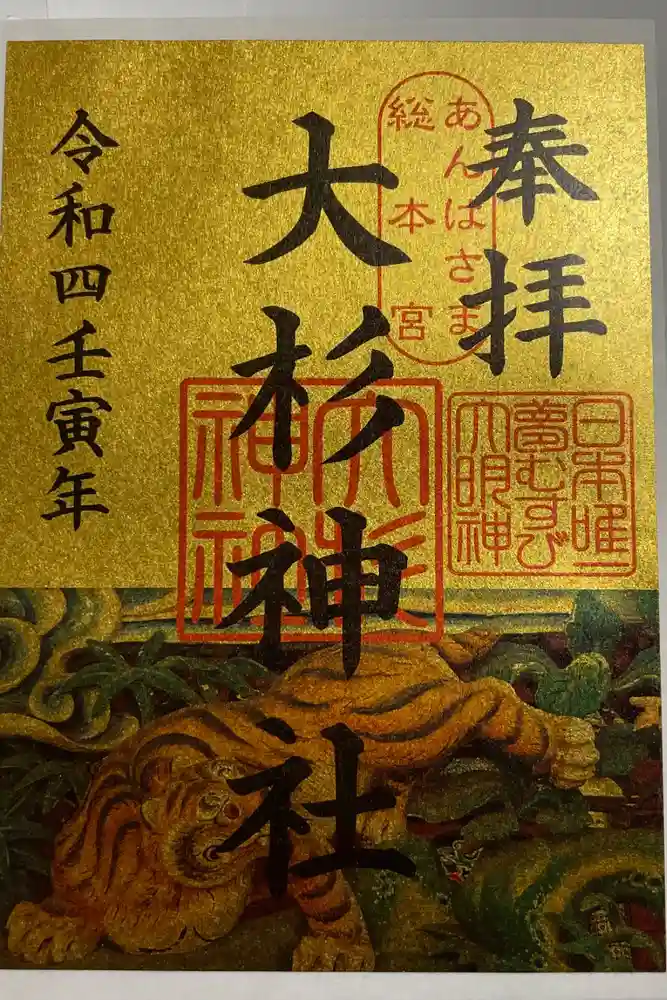 奉拝
あんばさま
総本宮
日本唯一
夢むすび
大明神
大杉神社
大杉
神社
令和四壬寅年